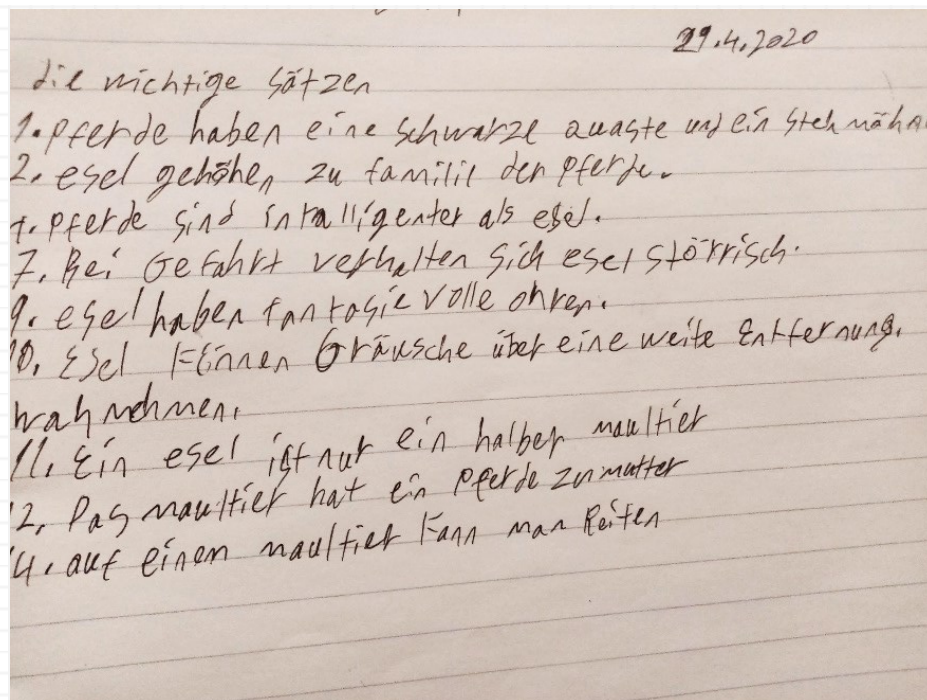 29.4.2020
die wichtige sätzen
1. pferde haben eine schwarze quaste und ein steh mähn
2. esel gehöhen zu familil der pferde.
pferde sind intalligenter als esel.
7. Bei Gefahrt verhalten sich esel störrisch.
9. esel haben fantasie volle ohren.
10. Esel können Gräusche über eine weite Entfernung.
wahrnehmen.
11. Ein esel ist nur ein halber maultier
12. Das maultier hat ein pferde zur mutter
14. auf einem maultier kann man Reiten